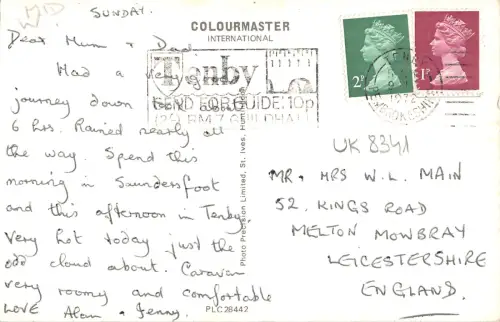 SUNDAY.
Dear Mum & Dad
Had a very good
journey down
6 hrs. Rained nearly all
the way. Spend this
morning in Saundersfoot
and this afternoon in Tenby.
Very hot today just the
odd cloud about. Caravan
very roomy and comfortable
LOVE Alan & Jenny.
COLOURMASTER
INTERNATIONAL
Tenby
SEND FOR GUIDE: 10p
GUILDHALL
2P
1P
Photo Precision Limited, St. Ives, Huntingdon
PLC28442
UK 8341
MR. & MRS W.L. MAIN
52. KINGS ROAD
MELTON MOWBRAY
LEICESTERSHIRE
ENGLAND.